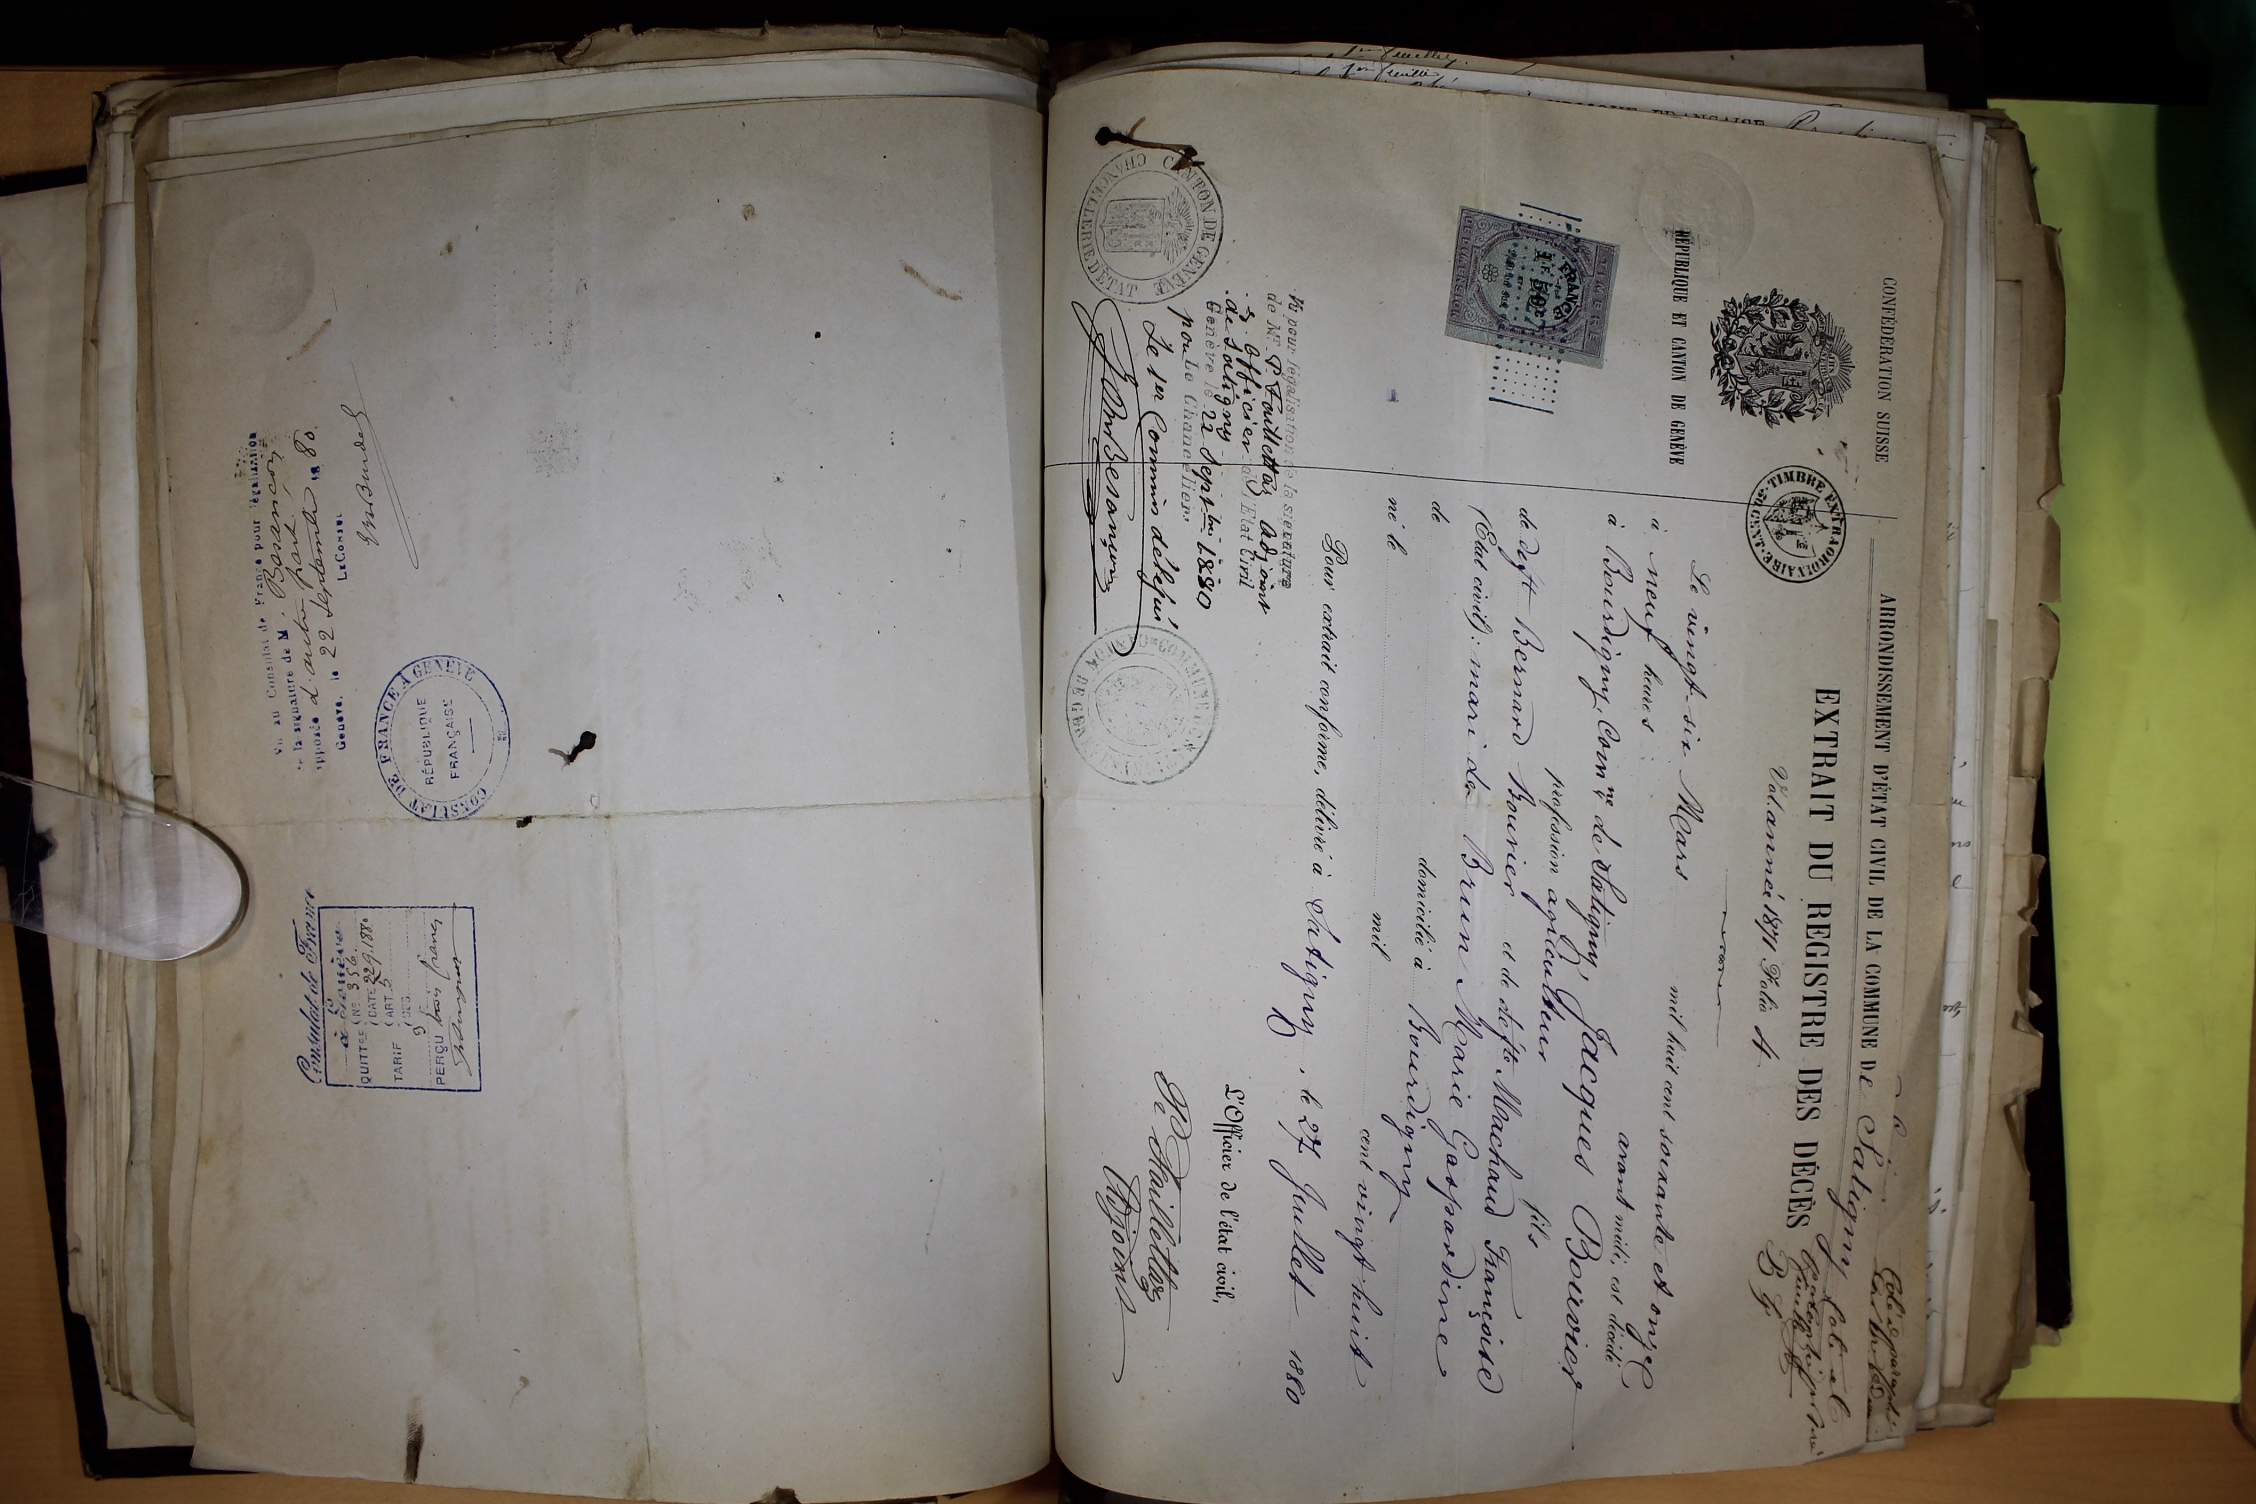 CONFÉDÉRATION SUISSE
RÉPUBLIQUE ET CANTON DE GENÈVE
TIMBRE EXTRAORDINAIRE
ARRONDISSEMENT D'ÉTAT CIVIL DE LA COMMUNE DE Satigny
EXTRAIT DU REGISTRE DES DÉCÈS
Vol. année 1871 Folio 4
Le vingt-six Mars mil huit cent soixante et onze
à neuf heures avant midi, est décédé
à Bourdigny, Comne de Satigny, Jacques Bouvier
profession agriculteur fils
de deft Bernard Bouvier et de défte Machard Françoise
(État civil): mari de Brun Marie Gaspardine
de domicilié à Bourdigny
né le mil cent vingt huit
Pour extrait conforme, délivré à Satigny, le 27 Juillet 1880
L'Officier de l'état civil,
Adjoint
FRANCE
Vu pour légalisation de la signature
de Mr. adjoint
Officier de l'État Civil
de Satigny
Genève le 22 Septbre 1880
pour Le Chancelier:
Le 1er Commis délégué
J. Besançon
CANTON DE GENÈVE
CHANCELLERIE D'ÉTAT
Vu au Consulat de France pour légalisation
de la signature de M. Besançon
apposée d'autre part.
Genève, le 22 Septembre 1880.
LE CONSUL
CONSULAT DE FRANCE A GENÈVE
RÉPUBLIQUE
FRANÇAISE
Consulat de France
à Genève
QUITTCE No 356
DATE 22.9.1880
TARIF ART.
PERÇU trois francs